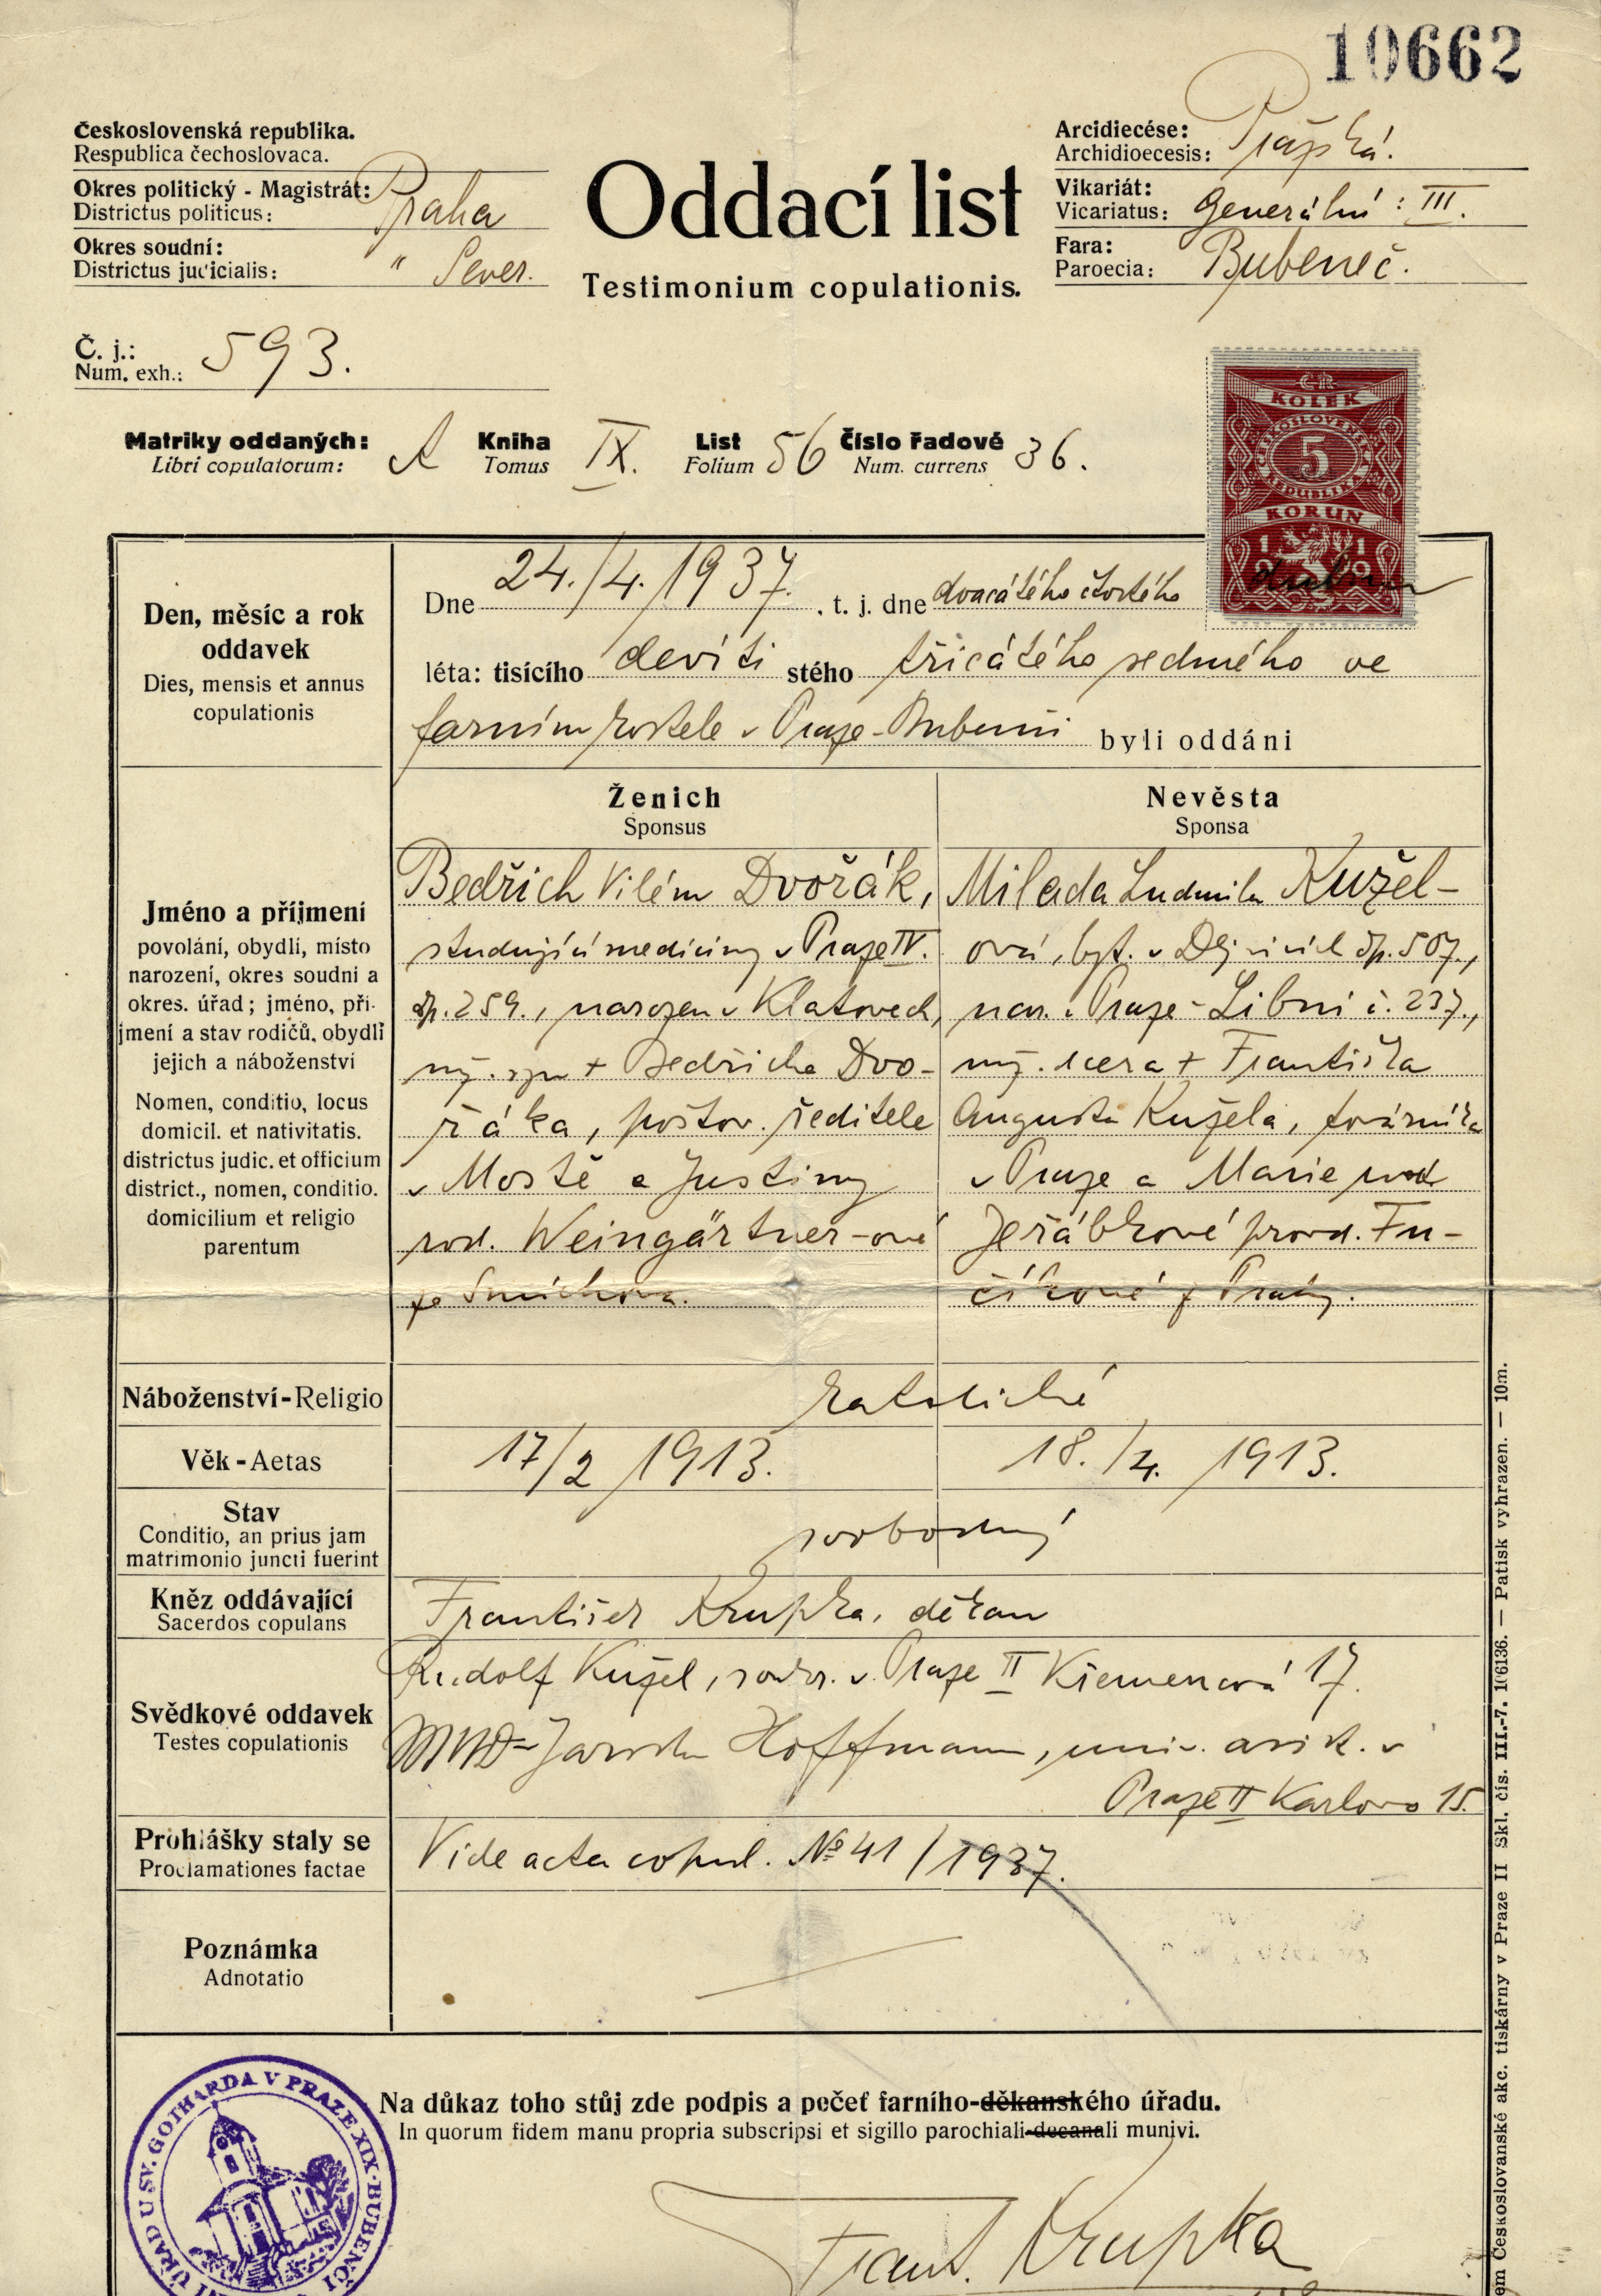 10662
Československá republika.
Respublica čechoslovaca.
Okres politický - Magistrát: Praha
Districtus politicus:
Okres soudní: " Sever.
Districtus judicialis:
Č. j.: 593.
Num. exh.:
Oddací list
Testimonium copulationis.
Arcidiecése: Pražská.
Archidioecesis:
Vikariát: Generální: III.
Vicariatus:
Fara: Bubeneč.
Paroecia:
ČR
KOLEK
5
KORUN
1919
Matriky oddaných: A Kniha IX. List 56 Číslo řadové 36.
Libri copulatorum: Tomus Folium Num. currens
Den, měsíc a rok
oddavek
Dies, mensis et annus
copulationis
Dne 24./4. 1937. , t. j. dne dvacátého čtvrtého dubna
léta: tisícího devíti stého třicátého sedmého ve
farním kostele v Praze-Bubenči byli oddáni
Ženich
Sponsus
Nevěsta
Sponsa
Jméno a příjmení
povolání, obydlí, místo
narození, okres soudní a
okres. úřad; jméno, pří-
jmení a stav rodičů, obydlí
jejich a náboženství
Nomen, conditio, locus
domicil. et nativitatis.
districtus judic. et officium
district., nomen, conditio.
domicilium et religio
parentum
Bedřich Vilém Dvořák,
studující medicíny v Praze IV.
čp. 259., narozen v Klatovech,
mž. syn + Bedřicha Dvo-
řáka, poštov. ředitele
v Mostě a Justiny
rod. Weingärtner-ové
ze Smíchova.
Milada Ludmila Kužel-
ová, byt. v Dejvicích čp. 507.,
nar. v Praze-Libni č. 237.,
mž. dcera + Františka
Augusta Kužela, továrníka
v Praze a Marie rod
Jeřábkové provd. Fu-
číkové z Prahy.
Náboženství-Religio
katolické
Věk-Aetas
17/2 1913.
18./4. 1913.
Stav
Conditio, an prius jam
matrimonio juncti fuerint
svobodný
Kněz oddávající
Sacerdos copulans
František Krupka, děkan
Svědkové oddavek
Testes copulationis
Rudolf Kužel, v Praze II Křemencová 17.
Hoffmann, univ. asist. v
Praze II Karlovo 15.
Prohlášky staly se
Proclamationes factae
Vide acta copul. № 41/1937.
Poznámka
Adnotatio
Na důkaz toho stůj zde podpis a pečeť farního-děkanského úřadu.
In quorum fidem manu propria subscripsi et sigillo parochiali-decanali munivi.
Frant. Krupka
ÚŘAD U SV. GOTHARDA V PRAZE XIX-BUBENČI
em Československé akc. tiskárny v Praze II Skl. čís. III.-7. 16136. — Patisk vyhrazen. — 10m.